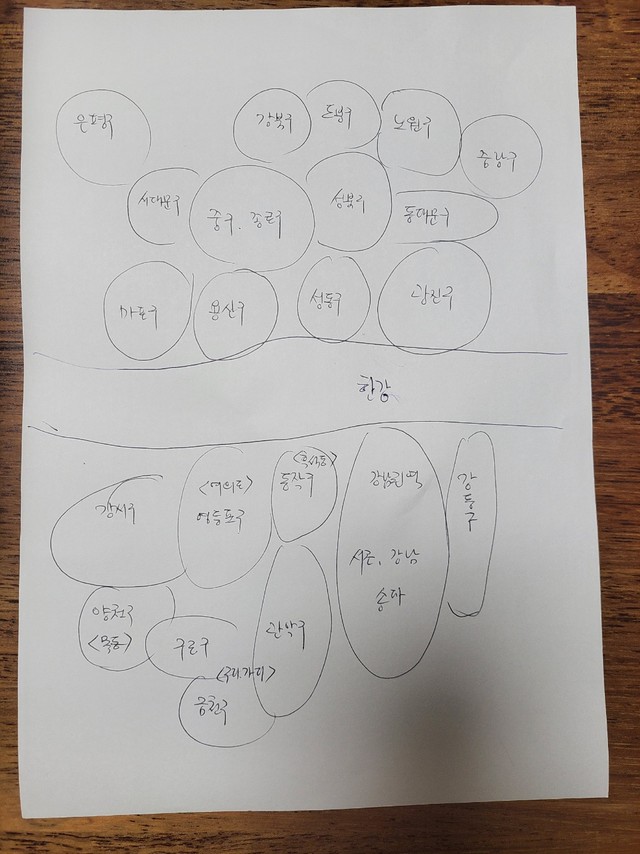 은평구
강북구
도봉구
노원구
중랑구
서대문구
중구, 종로구
성북구
동대문구
마포구
용산구
성동구
광진구
한강
강서구
<여의도>
영등포구
<흑석동>
동작구
서초, 강남
송파
강동구
양천구
<목동>
구로구
관악구
금천구